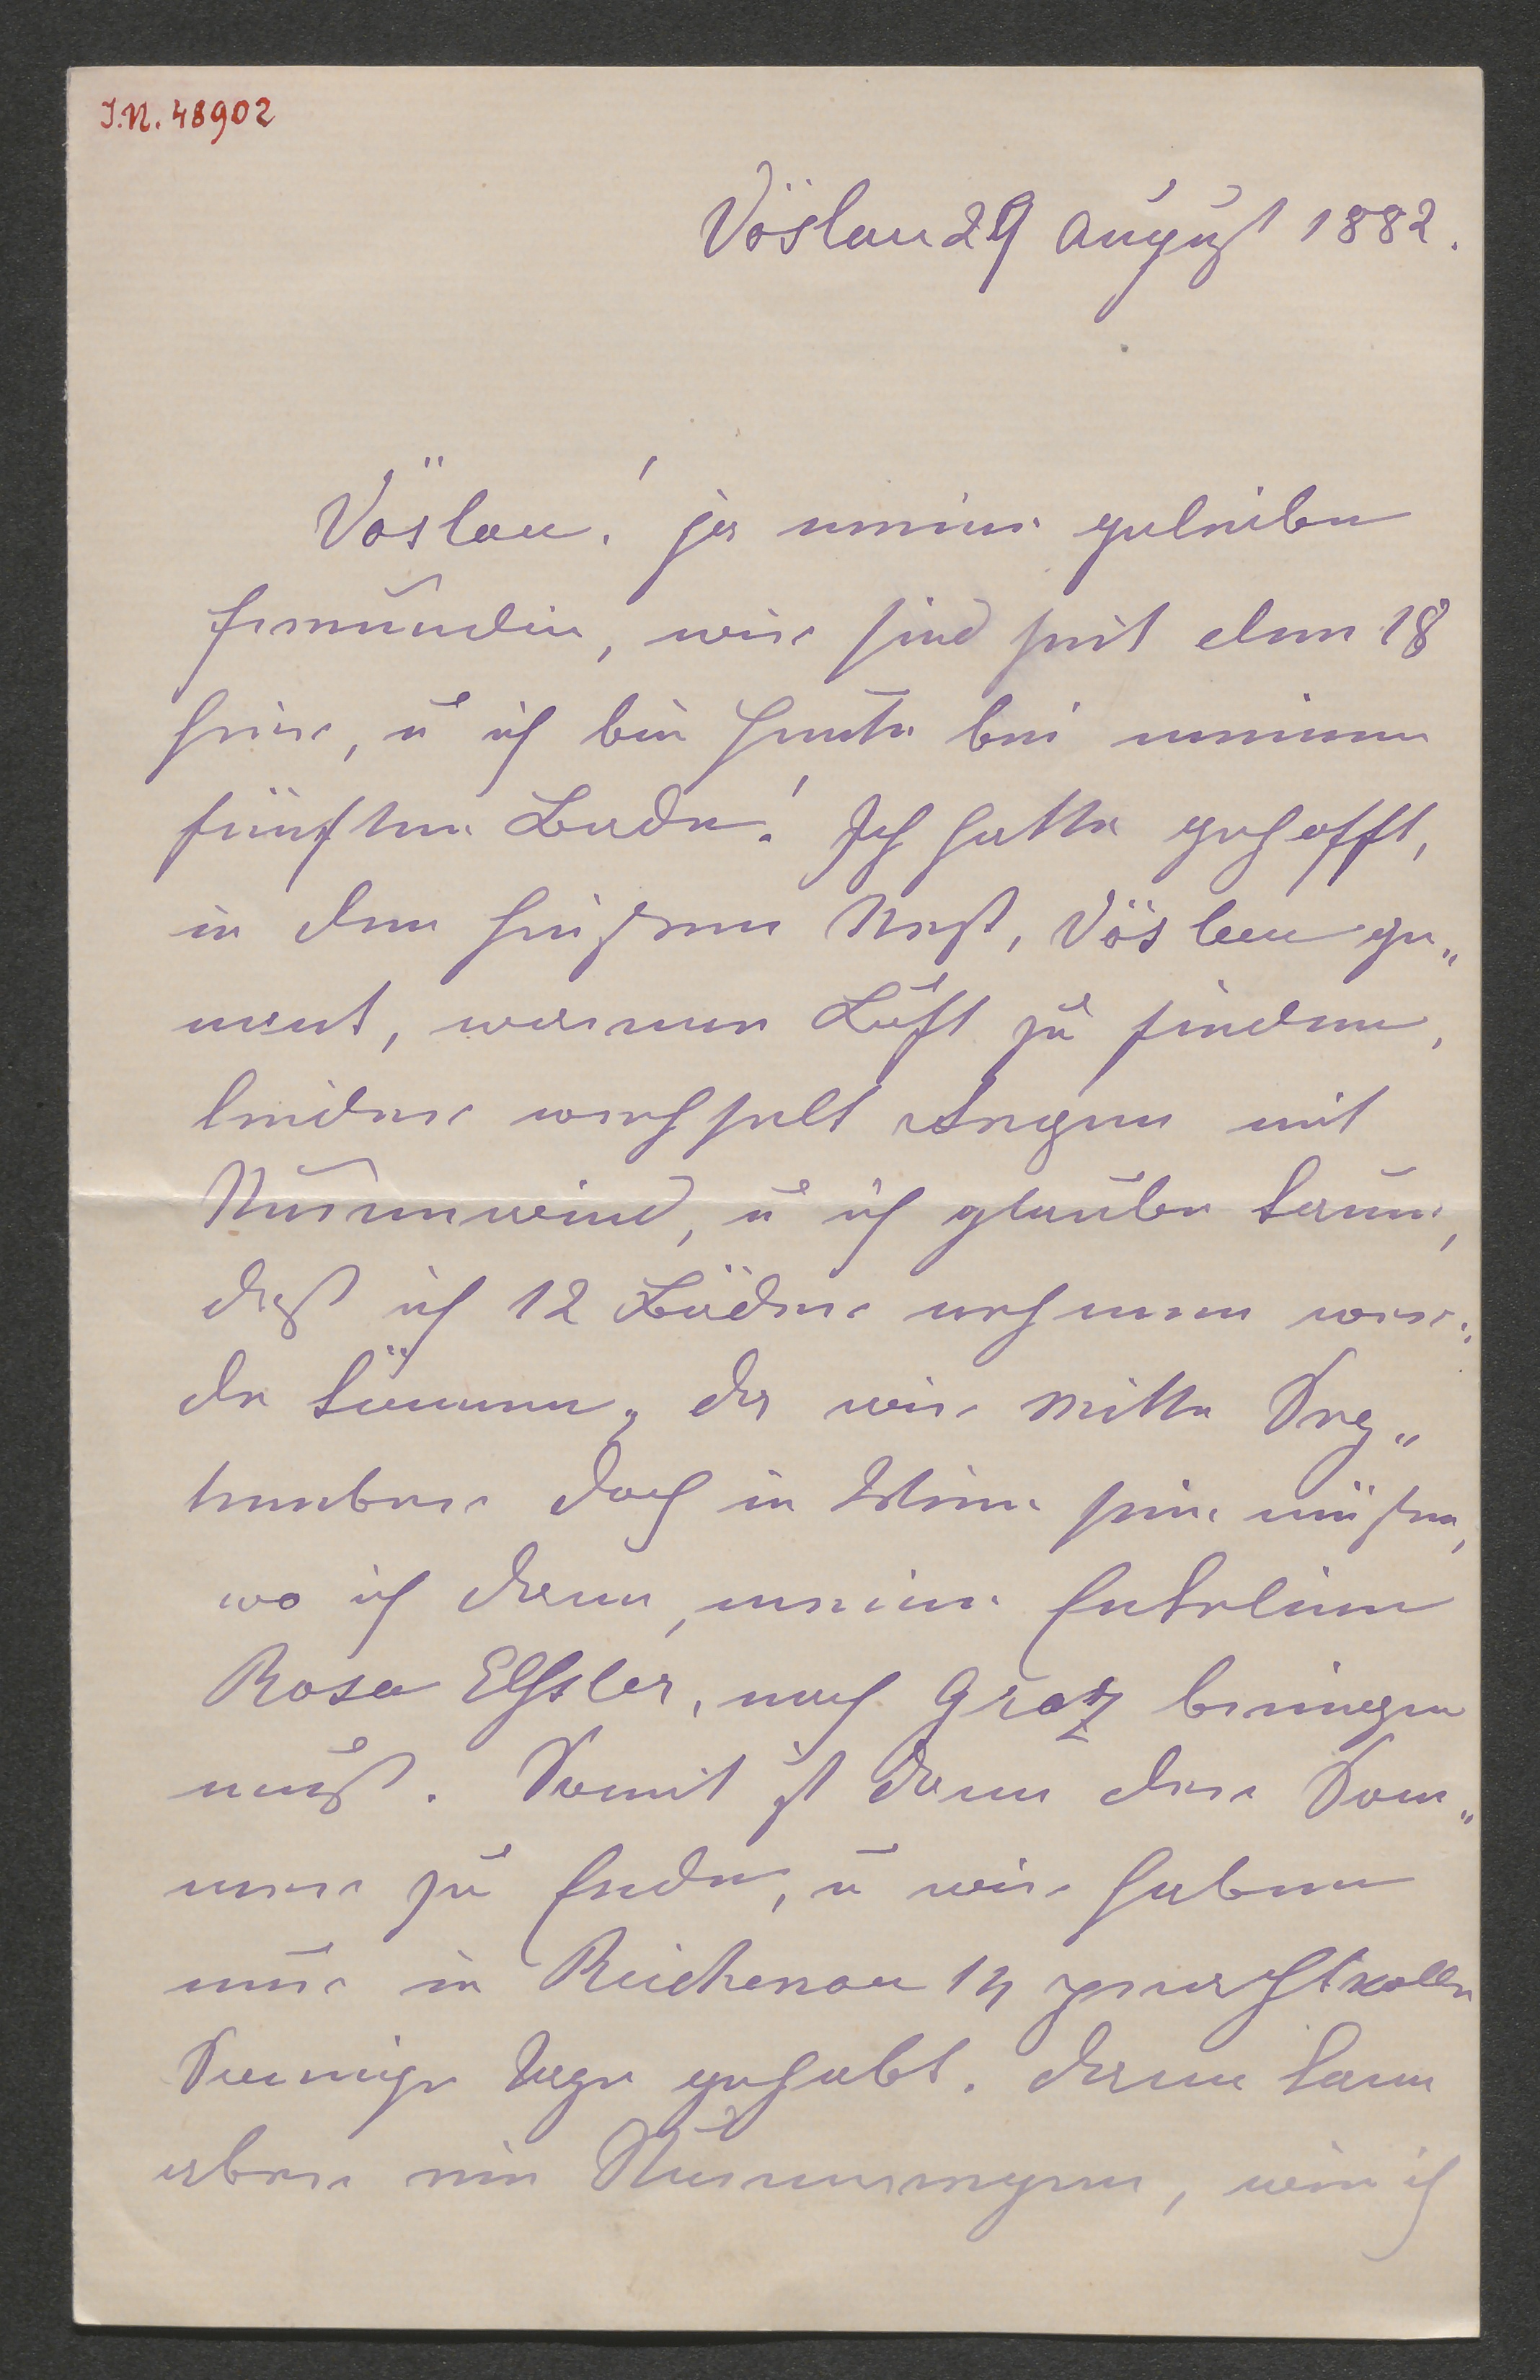 J.N. 48902
Vöslau 29 August 1882.
Vöslau! ja meine geliebte
Freundin, wir sind seit dem 18
hier, u ich bin heute bei meinem
fünften Bade! Ich hatte gehofft,
in dem heißen Nest, Vöslau ge„
nant, warme Luft zu finden,
leider wechselt Regen mit
Sturmwind, u ich glaube kaum,
daß ich 12 Bäder nehmen wer„
de können, da wir Mitte Sep„
tember doch in Wien sein müßen,
wo ich dann, meine Enkelin
Rosa Elßsler, nach Graz bringen
muß. Somit ist dann der Som„
mer zu Ende, u wir haben
nur in Reichenau 14 prachtvolle
Sonnige Tage gehabt. dann kam
aber ein Sturmregen, wie ich